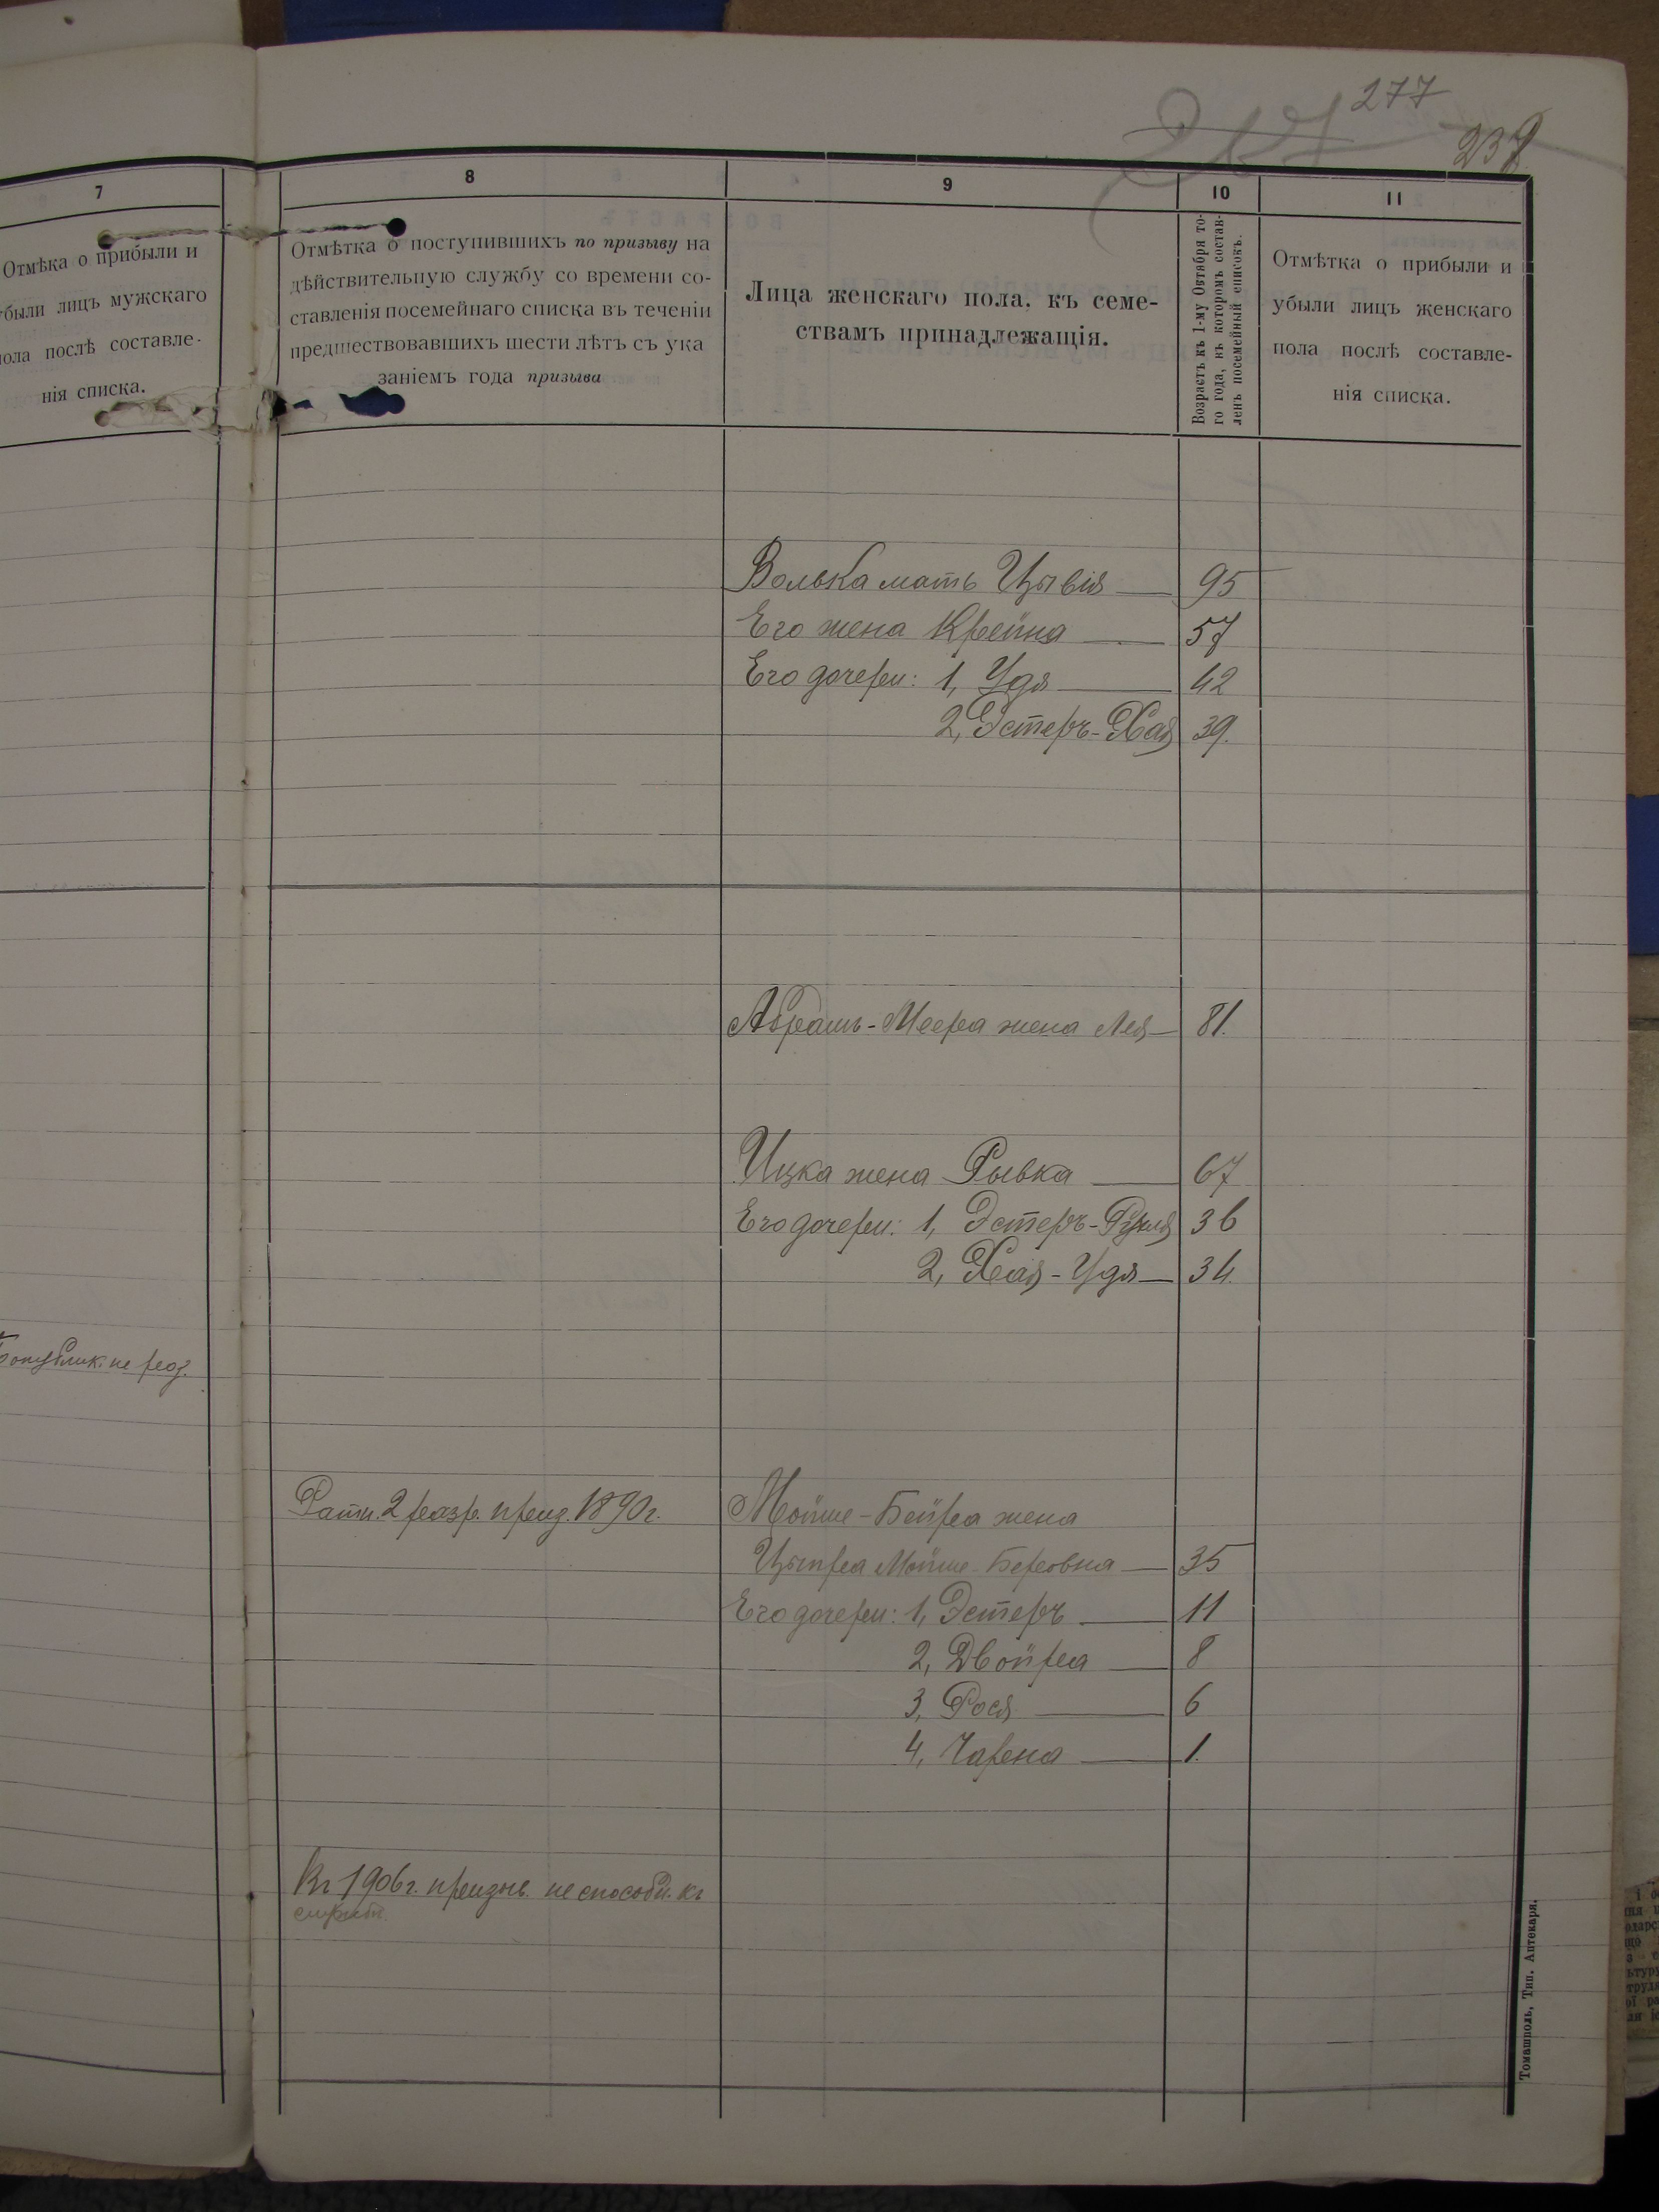 277
237
7
8
9
10
11
Отмѣка о прибыли и
были лицъ мужскаго
пола послѣ составле-
нія списка.
Отмѣтка о поступившихъ по призыву на
дѣйствительную службу со времени со-
ставленія посемейнаго списка въ теченіи
предшествовавшихъ шести лѣтъ съ ука
заніемъ года призыва
Лица женскаго пола. къ семе-
ствамъ принадлежащія.
Возрастъ къ 1-му Октября то-
го года, въ которомъ состав-
ленъ посемейный списокъ.
Отмѣтка о прибыли и
убыли лицъ женскаго
пола послѣ составле-
нія списка.
Волька мать Цывія 95
Его жена Крейна 57
Его дочери: 1, Удя 42
2, Эстеръ-Хая 39.
Абрамъ-Меера жена Лея 81.
Ицка жена Рывка 67
Его дочери: 1, Эстеръ-Рухля 36
2, Хая-Удя 34.
не
Ратн. 2 разр. приз. 1890 г.
Мойше-Бейра жена
Цыпра Мойше-Беровна 35
Его дочери: 1, Эстеръ 11
2, Двойра 8
3, Рося 6
4, Чарна 1.
Въ 1906 г. признв. не способн. къ
Томашполь, Тип. Аптекаря.